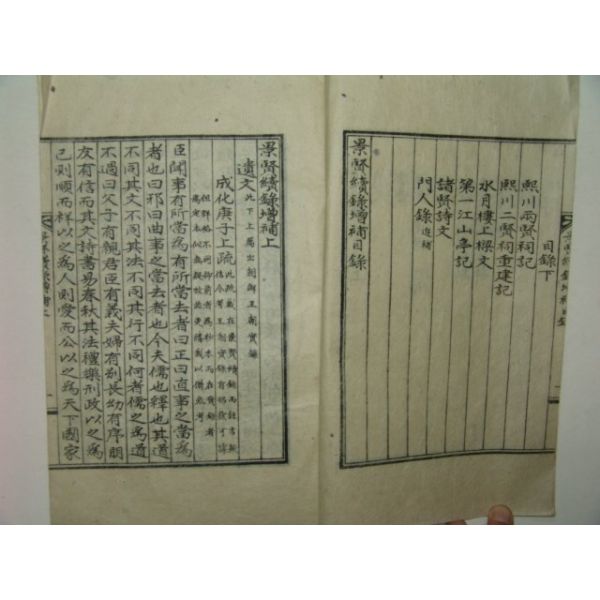 目錄下
熙川兩賢祠記
熙川二賢祠重建記
水月樓上樑文
第一江山亭記
諸賢詩文
門人錄 追補
景賢續錄增補目錄
景賢續錄增補上
遺文 此下上屬出朝鮮王朝實錄
成化庚子上疏
臣聞事有所當爲有所當去者曰正曰直事之當爲
者也曰邪曰曲事之當去者也今夫儒也釋也其道
不同其文不同其法不同其行不同何者儒之爲道
不過曰父子有親君臣有義夫婦有別長幼有序朋
友有信而其文詩書易春秋其法禮樂刑政以之爲
己則順而祥以之爲人則愛而公以之爲天下國家